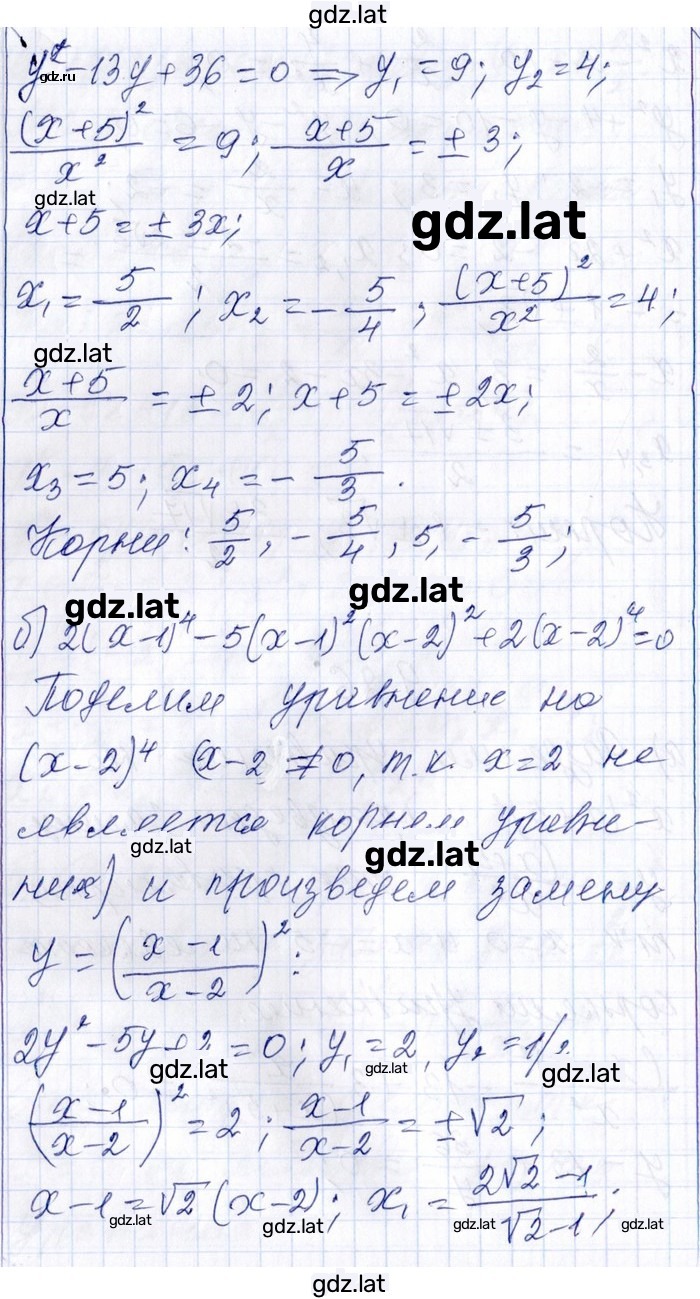 gdz.lat
y² - 13y + 36 = 0 => y₁ = 9; y₂ = 4;
gdz.ru
(x+5)²/x² = 9; (x+5)/x = ± 3;
gdz.lat
x + 5 = ± 3x;
gdz.lat
x₁ = 5/2; x₂ = - 5/4; (x+5)²/x² = 4;
gdz.lat
(x+5)/x = ± 2; x + 5 = ± 2x;
x₃ = 5; x₄ = - 5/3.
Корни: 5/2, - 5/4, 5, - 5/3;
gdz.lat
gdz.lat
б) 2(x-1)⁴ - 5(x-1)²(x-2)² + 2(x-2)⁴ = 0
Поделим уравнение на
(x-2)⁴ (x-2 ≠ 0, т.к. x=2 не
является корнем уравне-
gdz.lat
gdz.lat
ния) и произведем замену
y = ((x-1)/(x-2))²:
2y² - 5y + 2 = 0; y₁ = 2, y₂ = 1/2
gdz.lat
gdz.lat
gdz.lat
((x-1)/(x-2))² = 2; (x-1)/(x-2) = ± √2;
x - 1 = √2 (x-2); x₁ = (2√2 - 1)/(√2 - 1);
gdz.lat
gdz.lat
gdz.lat
gdz.lat
gdz.lat